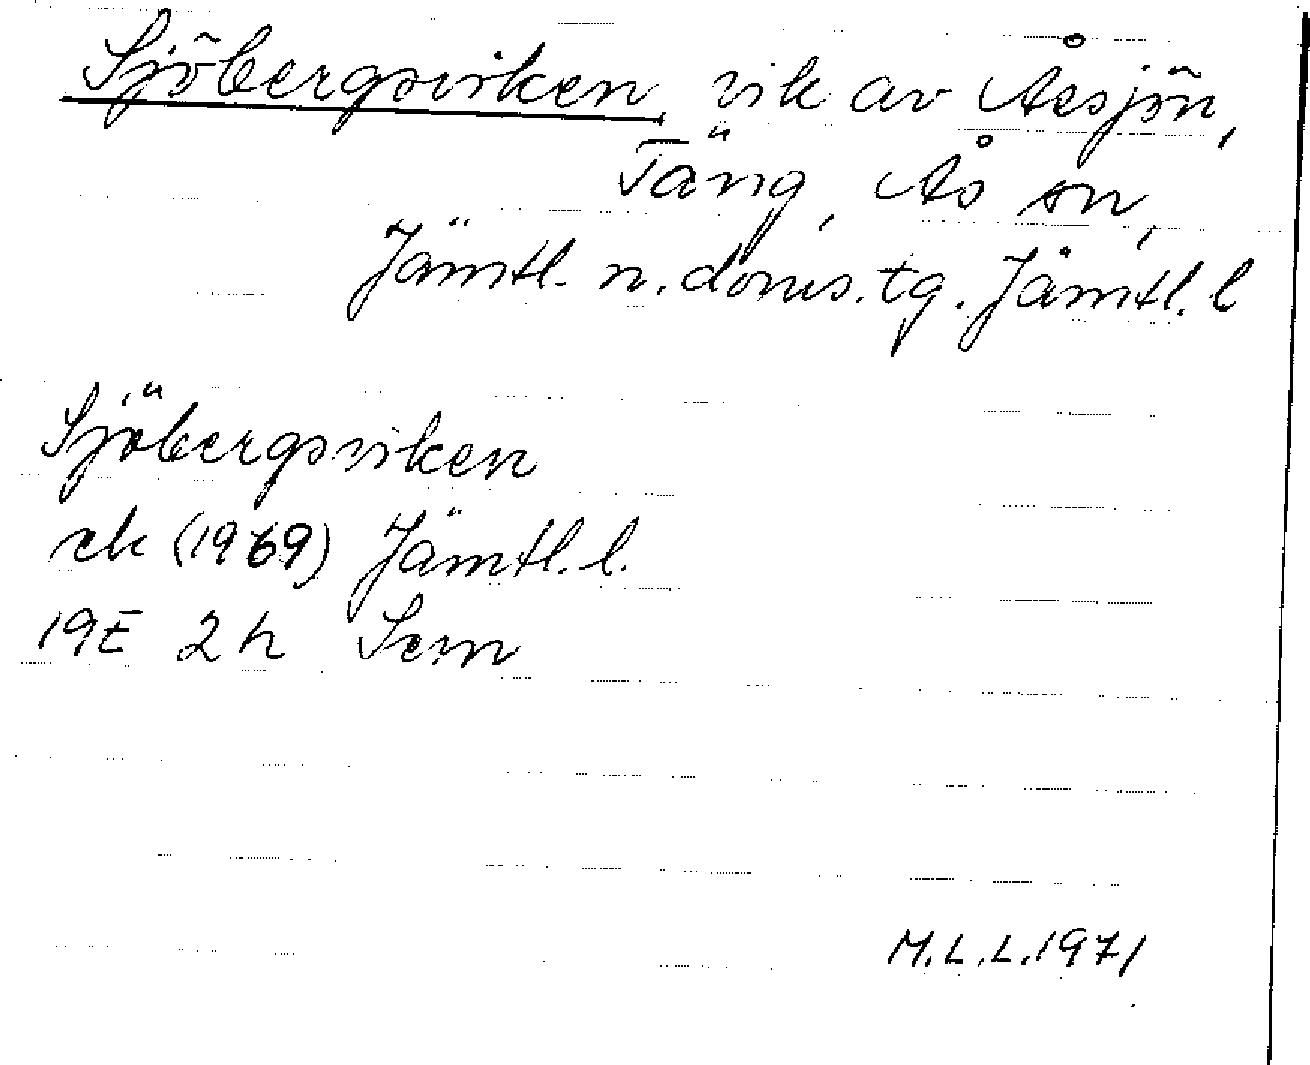 Sjöbergsviken, vik av Åsjön,
Täng, Ås sn,
Jämtl. n. doms. tg. Jämtl. l
Sjöbergsviken
ek (1969) Jämtl. l.
19E 2h Sem
M.L.L. 1971